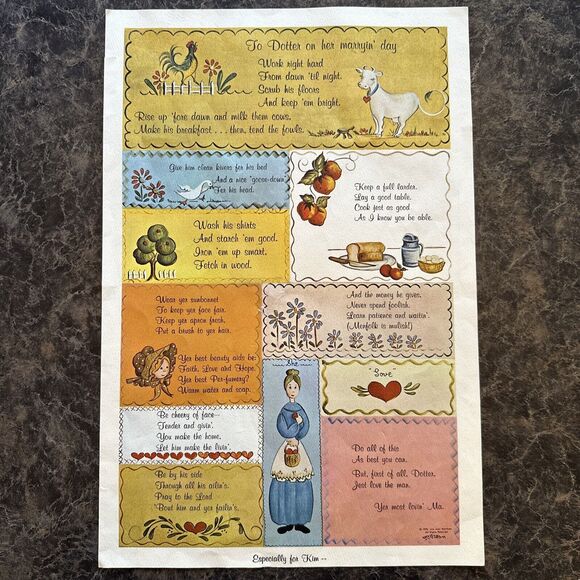 To Dotter on her marryin' day
Work right hard
From dawn 'til night.
Scrub his floors
And keep 'em bright.
Rise up 'fore dawn and milk them cows.
Make his breakfast . . . then, tend the fowls.
Give him clean kivers for his bed
And a nice "goose-down"
For his head.
Keep a full larder.
Lay a good table.
Cook jest as good
As I know you be able.
Wash his shirts
And starch 'em good.
Iron 'em up smart.
Fetch in wood.
Wear yer sunbonnet
To keep yer face fair.
Keep yer apron fresh.
Put a brush to yer hair.
And the money he gives,
Never spend foolish.
Learn patience and waitin'.
(Menfolk is mulish!)
Yer best beauty aids be:
Faith, Love and Hope.
Yer best Per-fumery?
Warm water and soap.
She
Love
Be cheery of face—
Tender and givin'.
You make the home.
Let him make the livin'.
Do all of this
As best you can.
But, first of all, Dotter,
Just love the man.
Yer most lovin' Ma.
Be by his side
Through all his ailin's.
Pray to the Lord
'Bout him and yer failin's.
Especially for Kim --